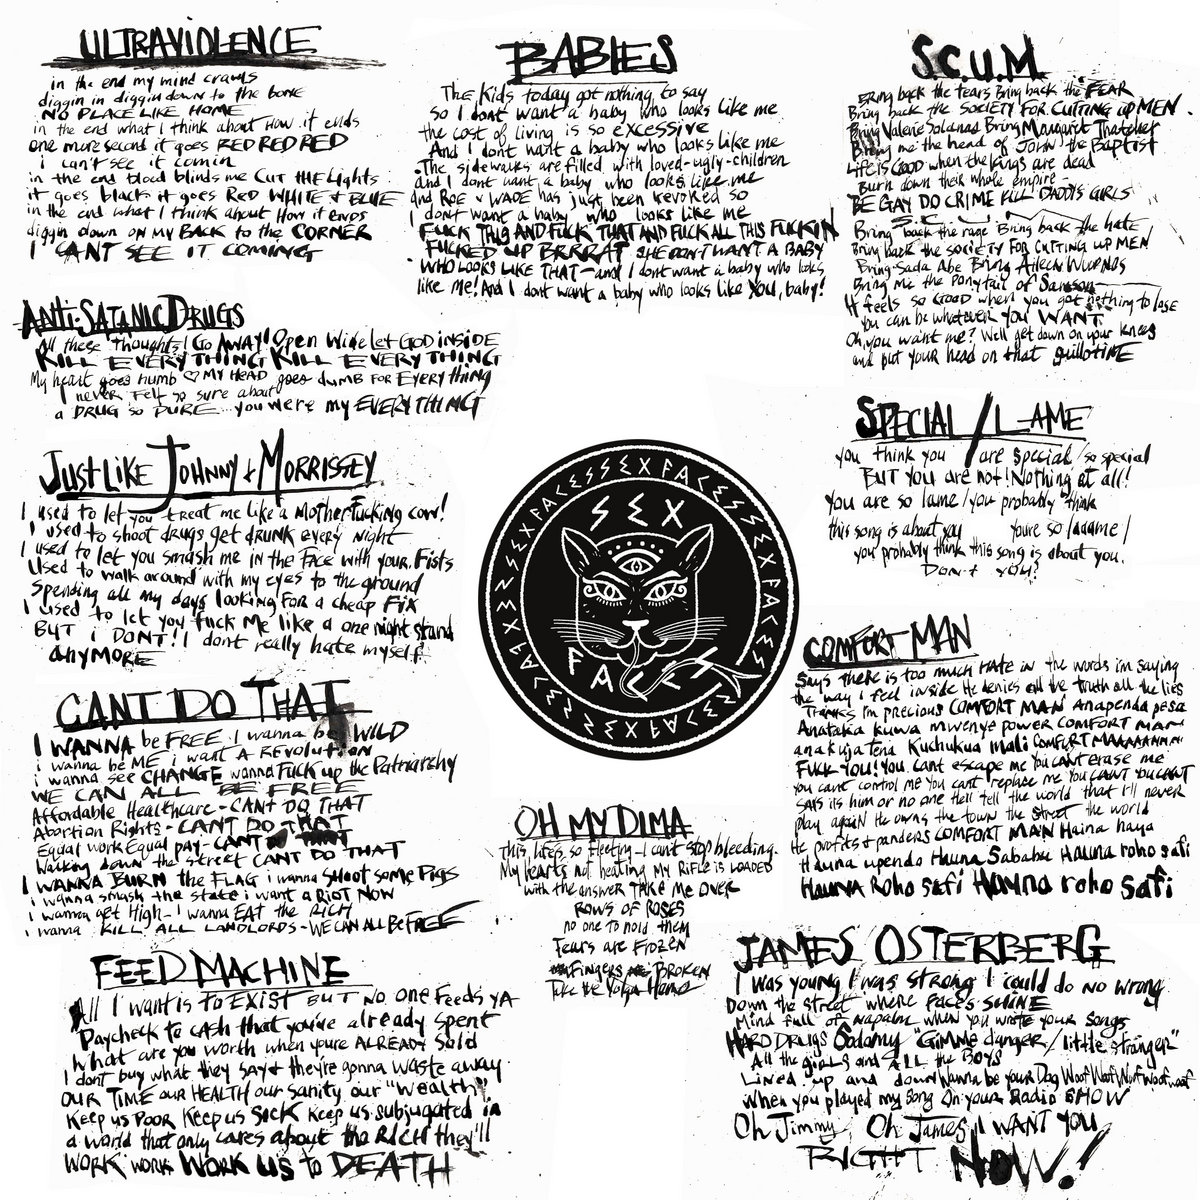 ULTRAVIOLENCE
in the end my mind crawls
diggin in diggin down to the bone
NO PLACE LIKE HOME
in the end what I think about HOW it ends
one more second it goes RED RED RED
i can't see it comin
in the end blood blinds me CUT tHE Lights
it goes black it goes RED WHITE + BLUE
in the end what I think about How it ENDS
diggin down on MY BACK to the CORNER
I CANT SEE IT COMING
ANTI-SATANIC DRUGS
All these thoughts! Go AWAY! Open Wide let GOD inSIDE
KILL EVERYTHING KILL EVERYTHING
My heart goes numb ♡ MY HEAD goes dumb FOR EVERYthing
never felt so sure about
a DRUG so PURE you were my EVERYTHING
JUST LIKE JOHNNY + MORRISSEY
I used to let you treat me like a Motherfucking cow!
I used to shoot drugs get drunk every Night
I used to let you smash me in the Face with your Fists
Used to walk around with my eyes to the ground
Spending all my days looking For a cheap Fix
I used to let you fuck me like a one night stand
BUT i DONT! I dont really hate myself
anyMORE
CANT DO THAT
I WANNA be FREE I wanna be WILD
i wanna be ME i want A REVolution
i wanna see CHANGE wanna FUCK up the Patriarchy
WE CAN ALL BE FREE
Affordable Healthcare - CANT DO THAT
Abortion Rights - CANT DO THAT
Equal work Equal pay - CANT DO THAT
Walking down the street CANT DO THAT
I WANNA BURN the FLAG i wanna SHOOT some Pigs
i wanna smash the state i want a RIOT NOW
i wanna get High - I wanna EAT the RICH
i wanna KILL ALL LANDLORDS - WE CAN ALL BE FREE
FEED MACHINE
All I want is to EXIST BUT NO ONE Feeds YA
Paycheck to cash that you've already spent
What are you worth when youre ALREADY Sold
I dont buy what they say + they're gonna waste away
OUR TIME our HEALTH our sanity our "wealth"
Keep us POOR Keep us SICK Keep us subjugated in
a world that only cares about the RICH they'll
WORK work WORK US to DEATH
BABIES
The Kids today got nothing to say
So I dont want a baby who looks like me
the cost of living is so excessive
And I dont want a baby who looks like me
The sidewalks are filled with loved-ugly-children
and I dont want a baby who looks like me
and ROE v WADE has just been revoked so
I dont want a baby who looks like me
FUCK THIS AND FUCK THAT AND FUCK ALL THIS FUCKIN
FUCKED UP BRRRAT SHE DON'T WANT A BABY
WHO LOOKS LIKE THAT - and I dont want a baby who looks
like me! And I dont want a baby who looks like YOU, baby!
SEX
FACES
SEX FACES SEX FACES SEX FACES SEX FACES
OH MY DIMA
This life's so fleeting - I can't stop bleeding
My hearts not healing My Rifle is LOADED
with the answer TAKE ME OVER
ROWS OF ROSES
no one to hold them
Tears are FROZEN
Fingers BROKEN
Take the Volga Home
S.C.U.M
Bring back the tears Bring back the FEAR
Bring back the SOCIETY FOR CUTTING UP MEN.
Bring Valerie Solanas Bring Margaret Thatcher
Bring me the head of JOHN the Baptist
Life is GOOD when the kings are dead
Burn down their whole empire
BE GAY DO CRIME KILL DADDYS GIRLS
S.C.U.M
Bring back the rage Bring back the hate
Bring back the SOCIETY FOR CUTTING UP MEN
Bring Sada Abe Bring Aileen WUORNOS
Bring me the Ponytail of Samson
It feels so GOOD when you got nothing to lose
You can be whatever YOU WANT
Oh, you want me? We'll get down on your knees
and put your head on that guillotinE
SPECIAL/LAME
you think you are special / so special
BUT YOU are not! Nothing at all!
you are so lame / you probably think
this song is about you youre so laaame /
you probably think this song is about you.
DON't YOU?
COMFORT MAN
Says there is too much HATE in the words im saying
the way I feel inside He denies all the truth all the lies
Thanks I'm precious COMFORT MAN Anapenda pesa
Anataka kuwa mwenye power COMFORT MAN
anakuja Tena Kuchukua mali COMFORT MAAAAANNN
FUCK YOU! You Cant escape me You CANT Erase me
You cant control me You cant replace me You CANT YOU CANT
says its him or no one Hell tell the world that I'll never
play again He owns the town the street the world
He profits + panders COMFORT MAN Haina haya
Hauna upendo Hauna Sababu Hauna roho safi
Hauna Roho safi Hauna roho safi
JAMES OSTERBERG
I was young I was strong I could do no wrong
Down the street where faces SHINE
Mind full of napalm when you wrote your songs
HARD DRUGS Sodomy "Gimme danger / little stranger"
All the girls and ALL the BOYS
Lined up and down Wanna be your Dog Woof Woof Woof Woof woof
When you played my song On your Radio SHOW
Oh Jimmy Oh James I WANT YOU
RIGHT NOW!